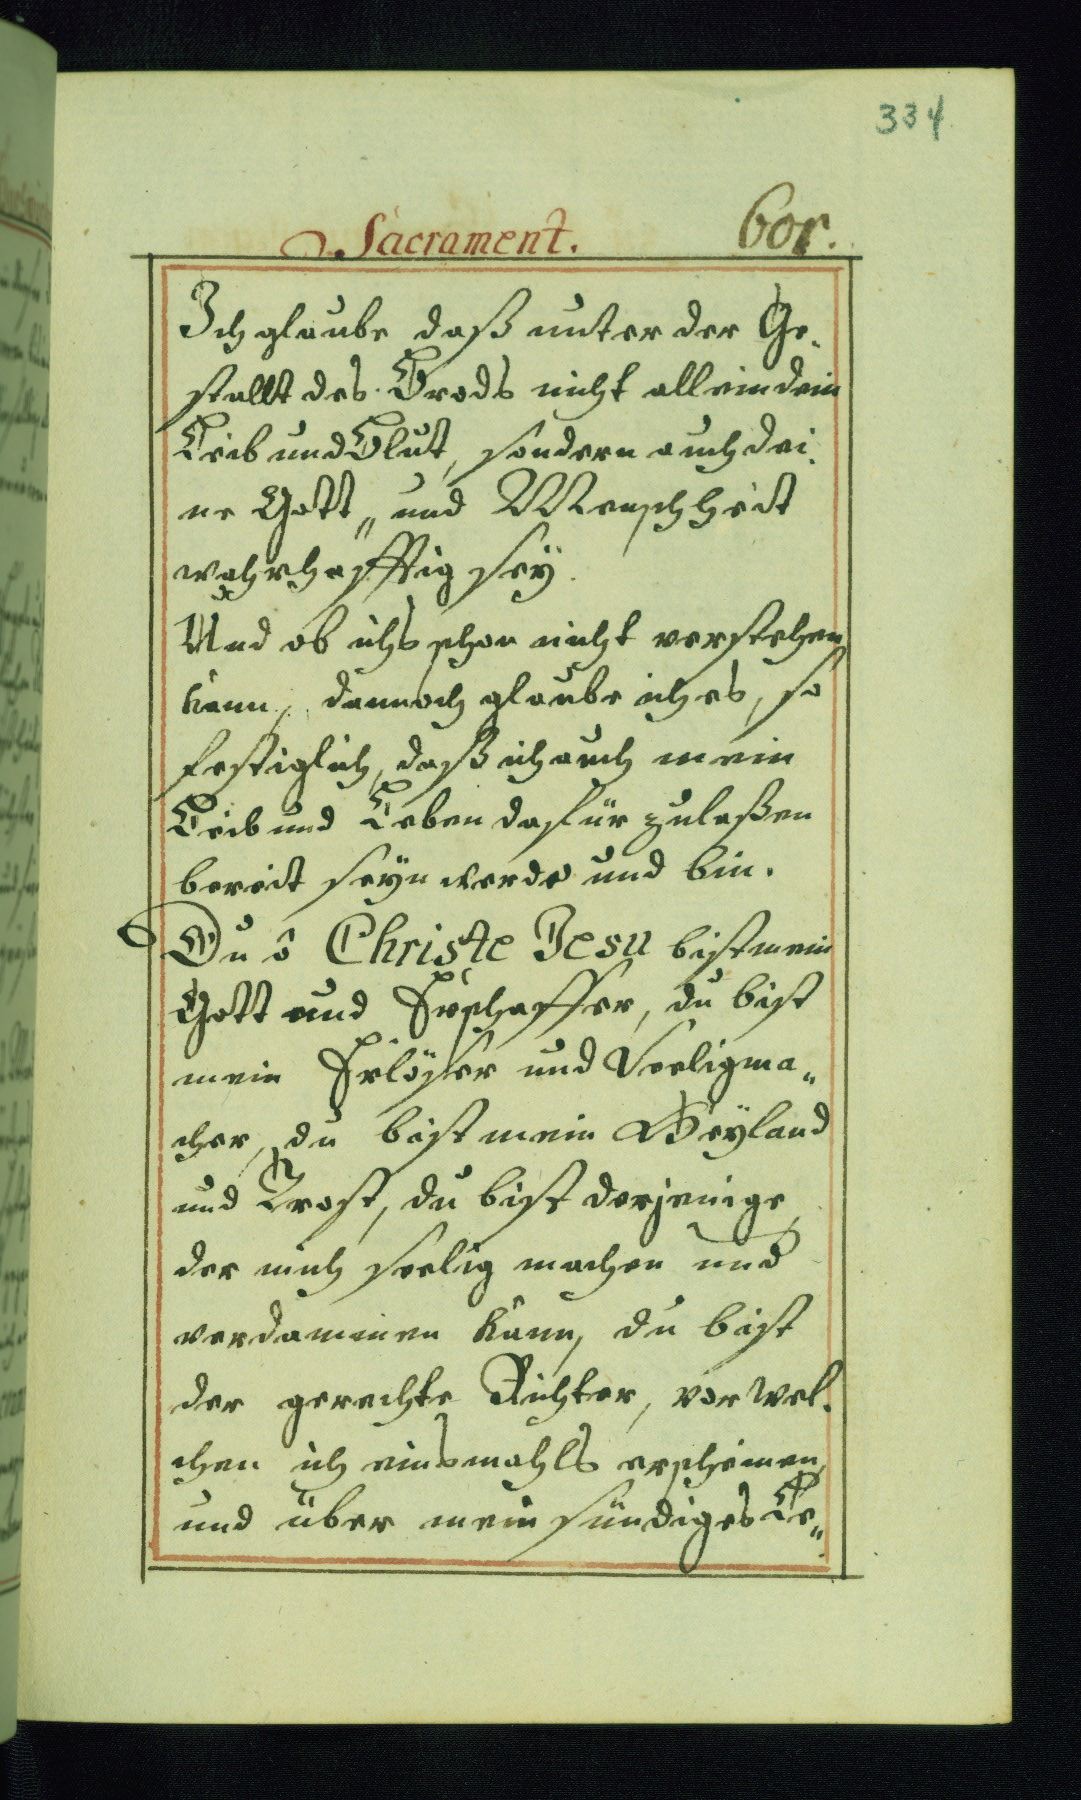 334
Sacrament. 601.
Ich glaube daß unter der Ge-
stallt des Brods nicht allein dein
Leib und Blut, sondern auch dei-
ne Gott„ und Menschheit
wahrhafftig seÿ.
Und ob ichs schon nicht verstehen
kann, dannoch glaube ich es, so
festiglich, daß ich auch mein
Leib und Leben dafür zulaßen
bereit seÿn werde und bin.
Du ô Christe Jesu bist mein
Gott und Erschaffer, du bist
mein Erlöser und Seeligma„
cher, du bist mein Heÿland
und Trost, du bist derjenige
der mich seelig machen und
verdammen kann, du bist
der gerechte Richter, vor wel-
chen ich einsmahls erscheinen,
und über mein sündiges Le„